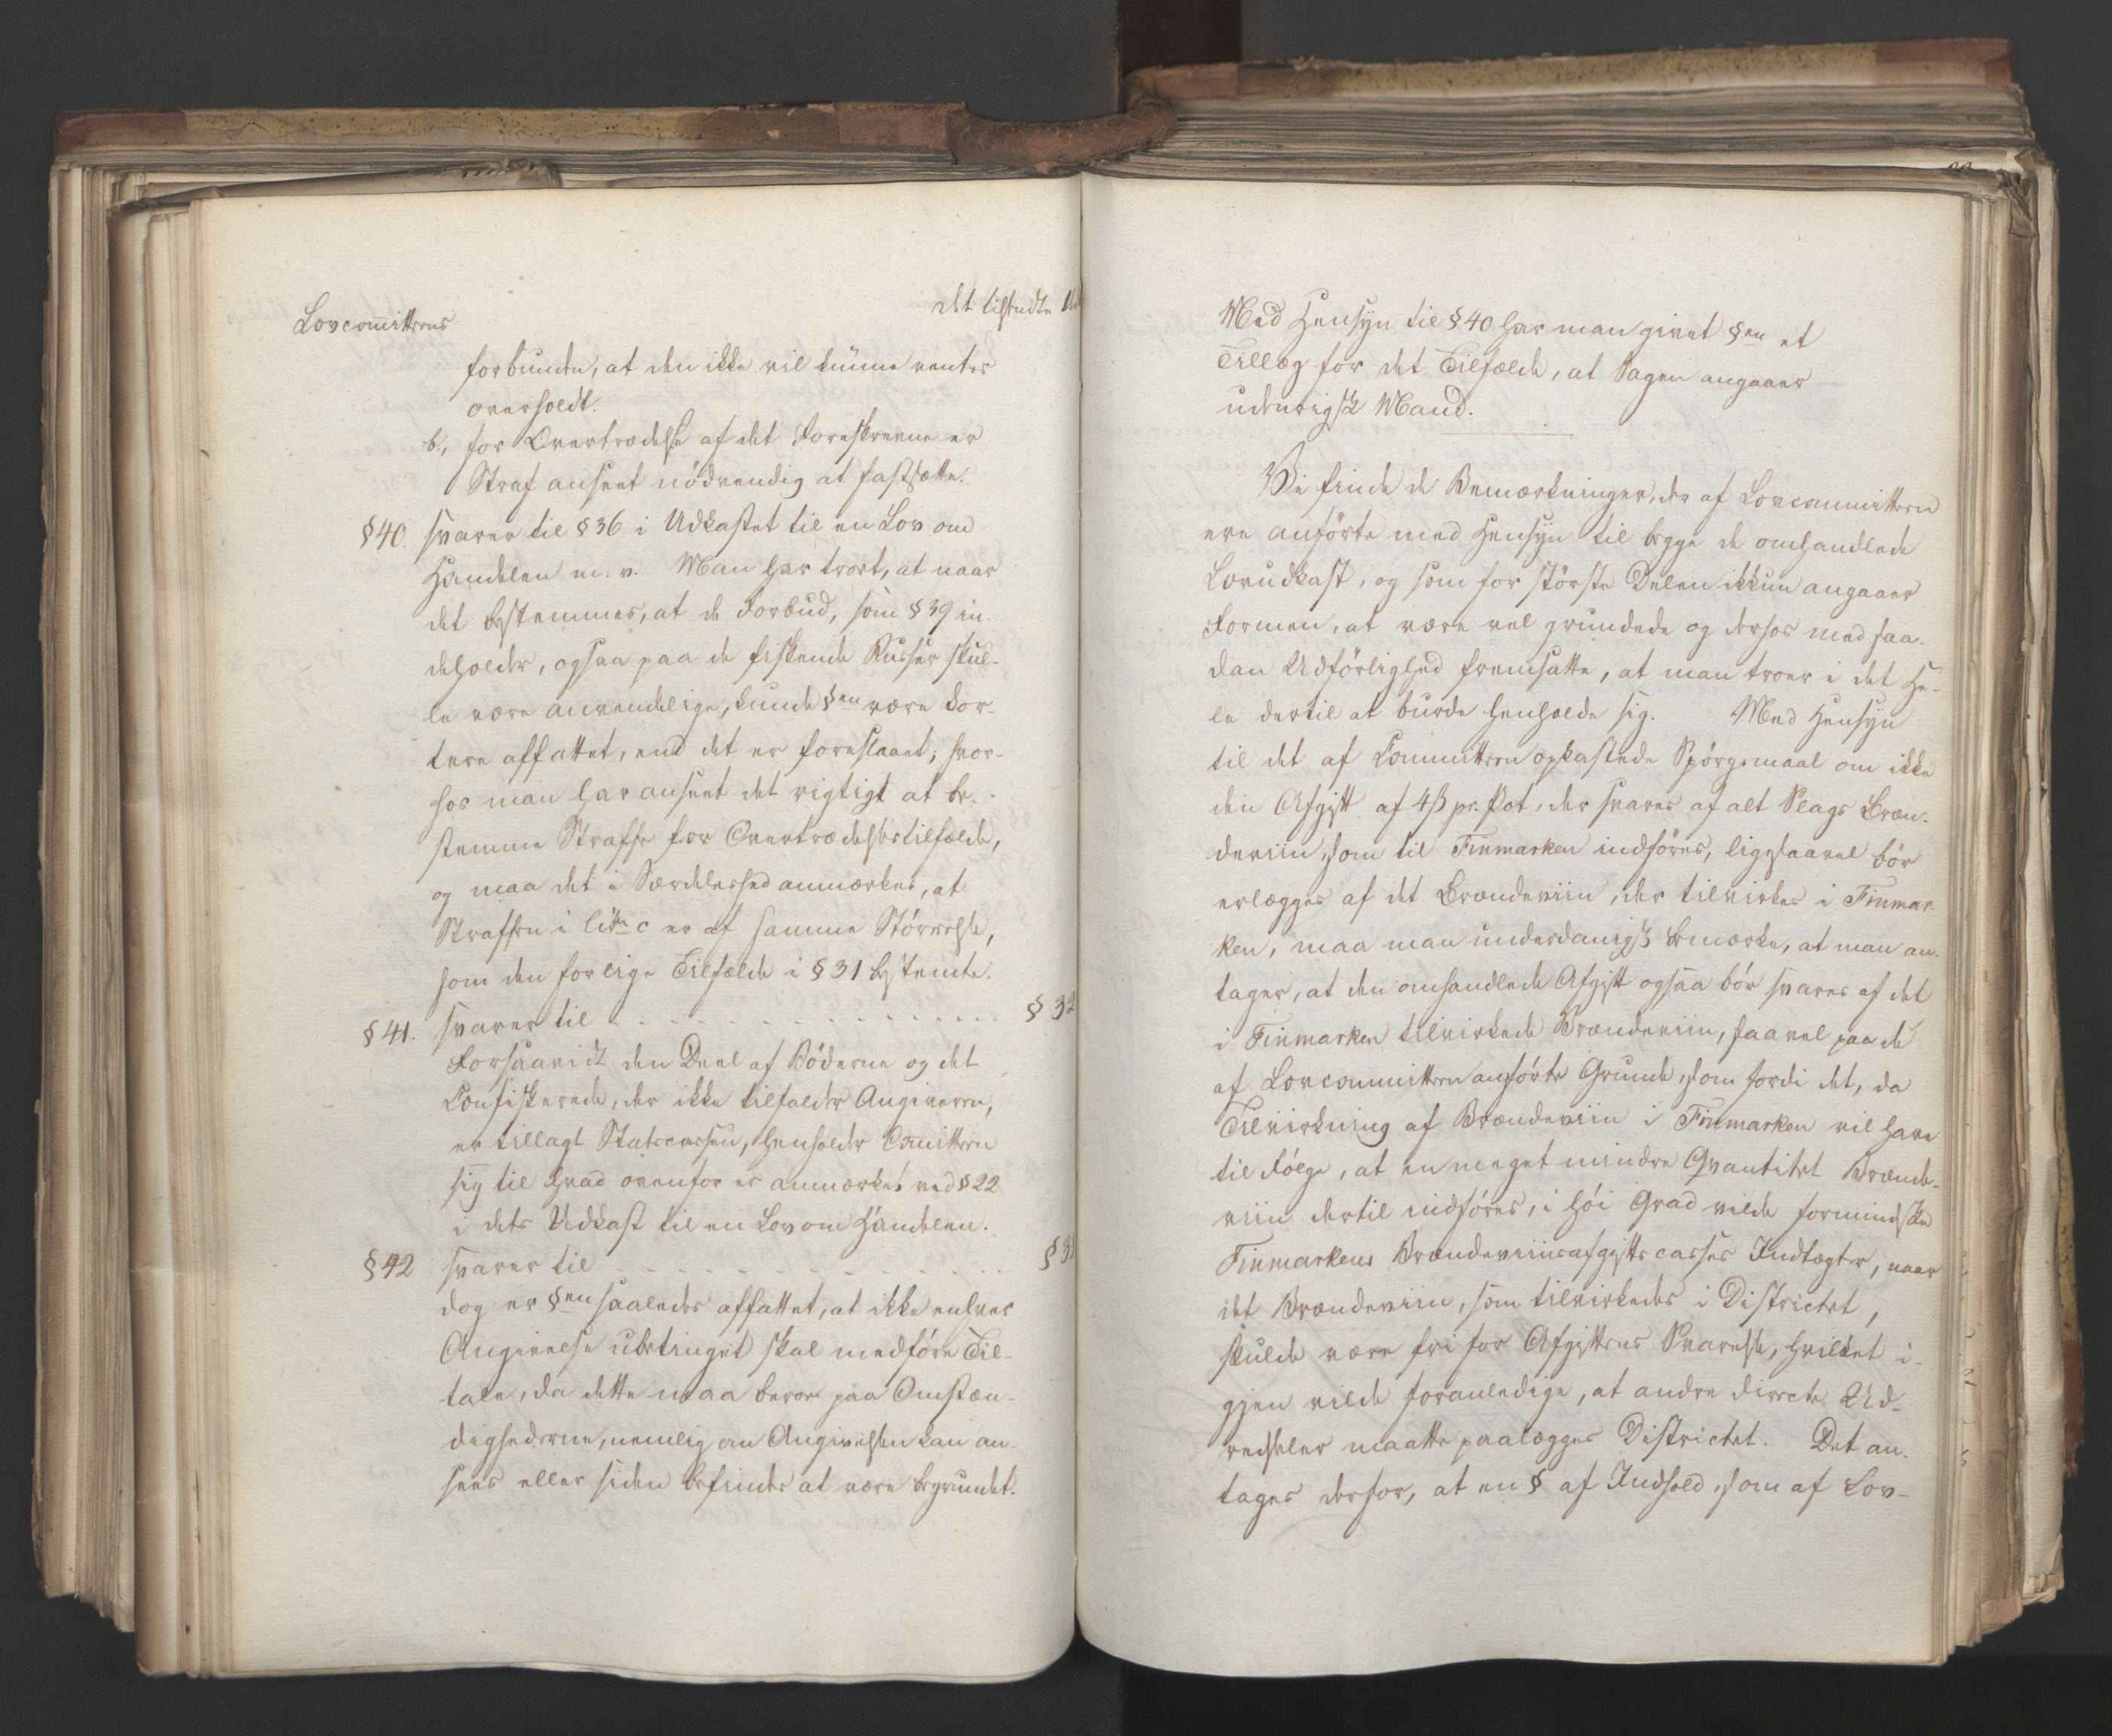 Lovcomitteens
det tilsendte
forbunden, at den ikke vil kunne ventes
overholdt.
b., for Overtrædelse af det Foreskrevne er
Straf anseet nödvendig at fastsætte.
§ 40. svarer til § 36 i Udkastet til en Lov om
Handelen m. v. Man har troet, at naar
det bestemmes, at de Forbud, som § 39 in-
deholder, ogsaa paa de fiskende Russer skul-
le være anvendelige, kunde §en være kor-
tere affattet, end det er foreslaaet; hvor-
hos man har anseet det rigtigt at be-
stemme Straffe for Overtrædelsestilfælde,
og maa det i Særdeleshed anmærkes, at
Straffen i litr. c er af samme Störrelse,
som den for lige Tilfælde i § 31 bestemte.
§ 41. svarer til . . . . . . . . . . . . . . . . § 32
Forsaavidt den Deel af Böderne og det
Confiskerede, der ikke tilfalder Angiveren,
er tillagt Statscassen, henholder Comitteen
sig til hvad ovenfor er anmærket ved § 22
i dets Udkast til en Lov om Handelen.
§ 42 svarer til . . . . . . . . . . . . . . . § 3
dog er §en saaledes affattet, at ikke enhver
Angivelse ubetinget skal medföre Til-
tale, da dette maa beroe paa Omstæn-
dighederne, nemlig om Angivelsen kan an-
sees eller siden befindes at være begrundet.
Med Hensyn til § 40 har man givet §en et
Tillæg for det Tilfælde, at Sagen angaaer
udenrigsk Mand.
Vi finde de Bemærkninger, der af Lovcommitteen
ere anförte med Hensyn til begge de omhandlede
Lovudkast, og som for störste Delen ikkun angaaer
Formen, at være vel grundede og derhos med saa-
dan Udförlighed fremsatte, at man troer i det He-
le dertil at burde henholde sig. Med Hensyn
til det af Committeen opkastede Spörgsmaal om ikke
den Afgift af 4 ß pr. Pot, der svares af alt Slags Bræn-
deviin, som til Finmarken indföres, ligesaavel bör
erlægges af det Brændeviin, der tilvirkes i Finmar-
ken, maa man underdanigst bemærke, at man an-
tager, at den omhandlede Afgift ogsaa bör svares af det
i Finmarken tilvirkede Brændeviin, saavel paa de
af Lovcommitteen anförte Grunde, som fordi det, da
Tilvirkning af Brændeviin i Finmarken vil have
til Fölge, at en meget mindre Qvantitet Brænde-
viin dertil indföres, i höi Grad vilde formindske
Finmarkens Brændeviinsafgifts casses Indtægter, naar
det Brændeviin, som tilvirkedes i Districtet,
skulde være fri for Afgiftens Svarelse, hvilket i-
gjen vilde foranledige, at andre directe Ud-
redsler maatte paalægges Districtet. Det an-
tages derfor, at en § af Indhold, som af Lov-